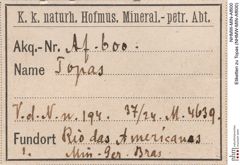 K. k. naturh. Hofmus. Mineral.-petr. Abt.
Akq.-Nr. Af. 600.
Name Topas
V. d. N. n. 194. 37/24. M. 4639.
Fundort Rio das Americanas
Min. Ger. Bras
NHMW-MIN-Af600
Etiketten zu Topas (NHMW-MIN-Af600)